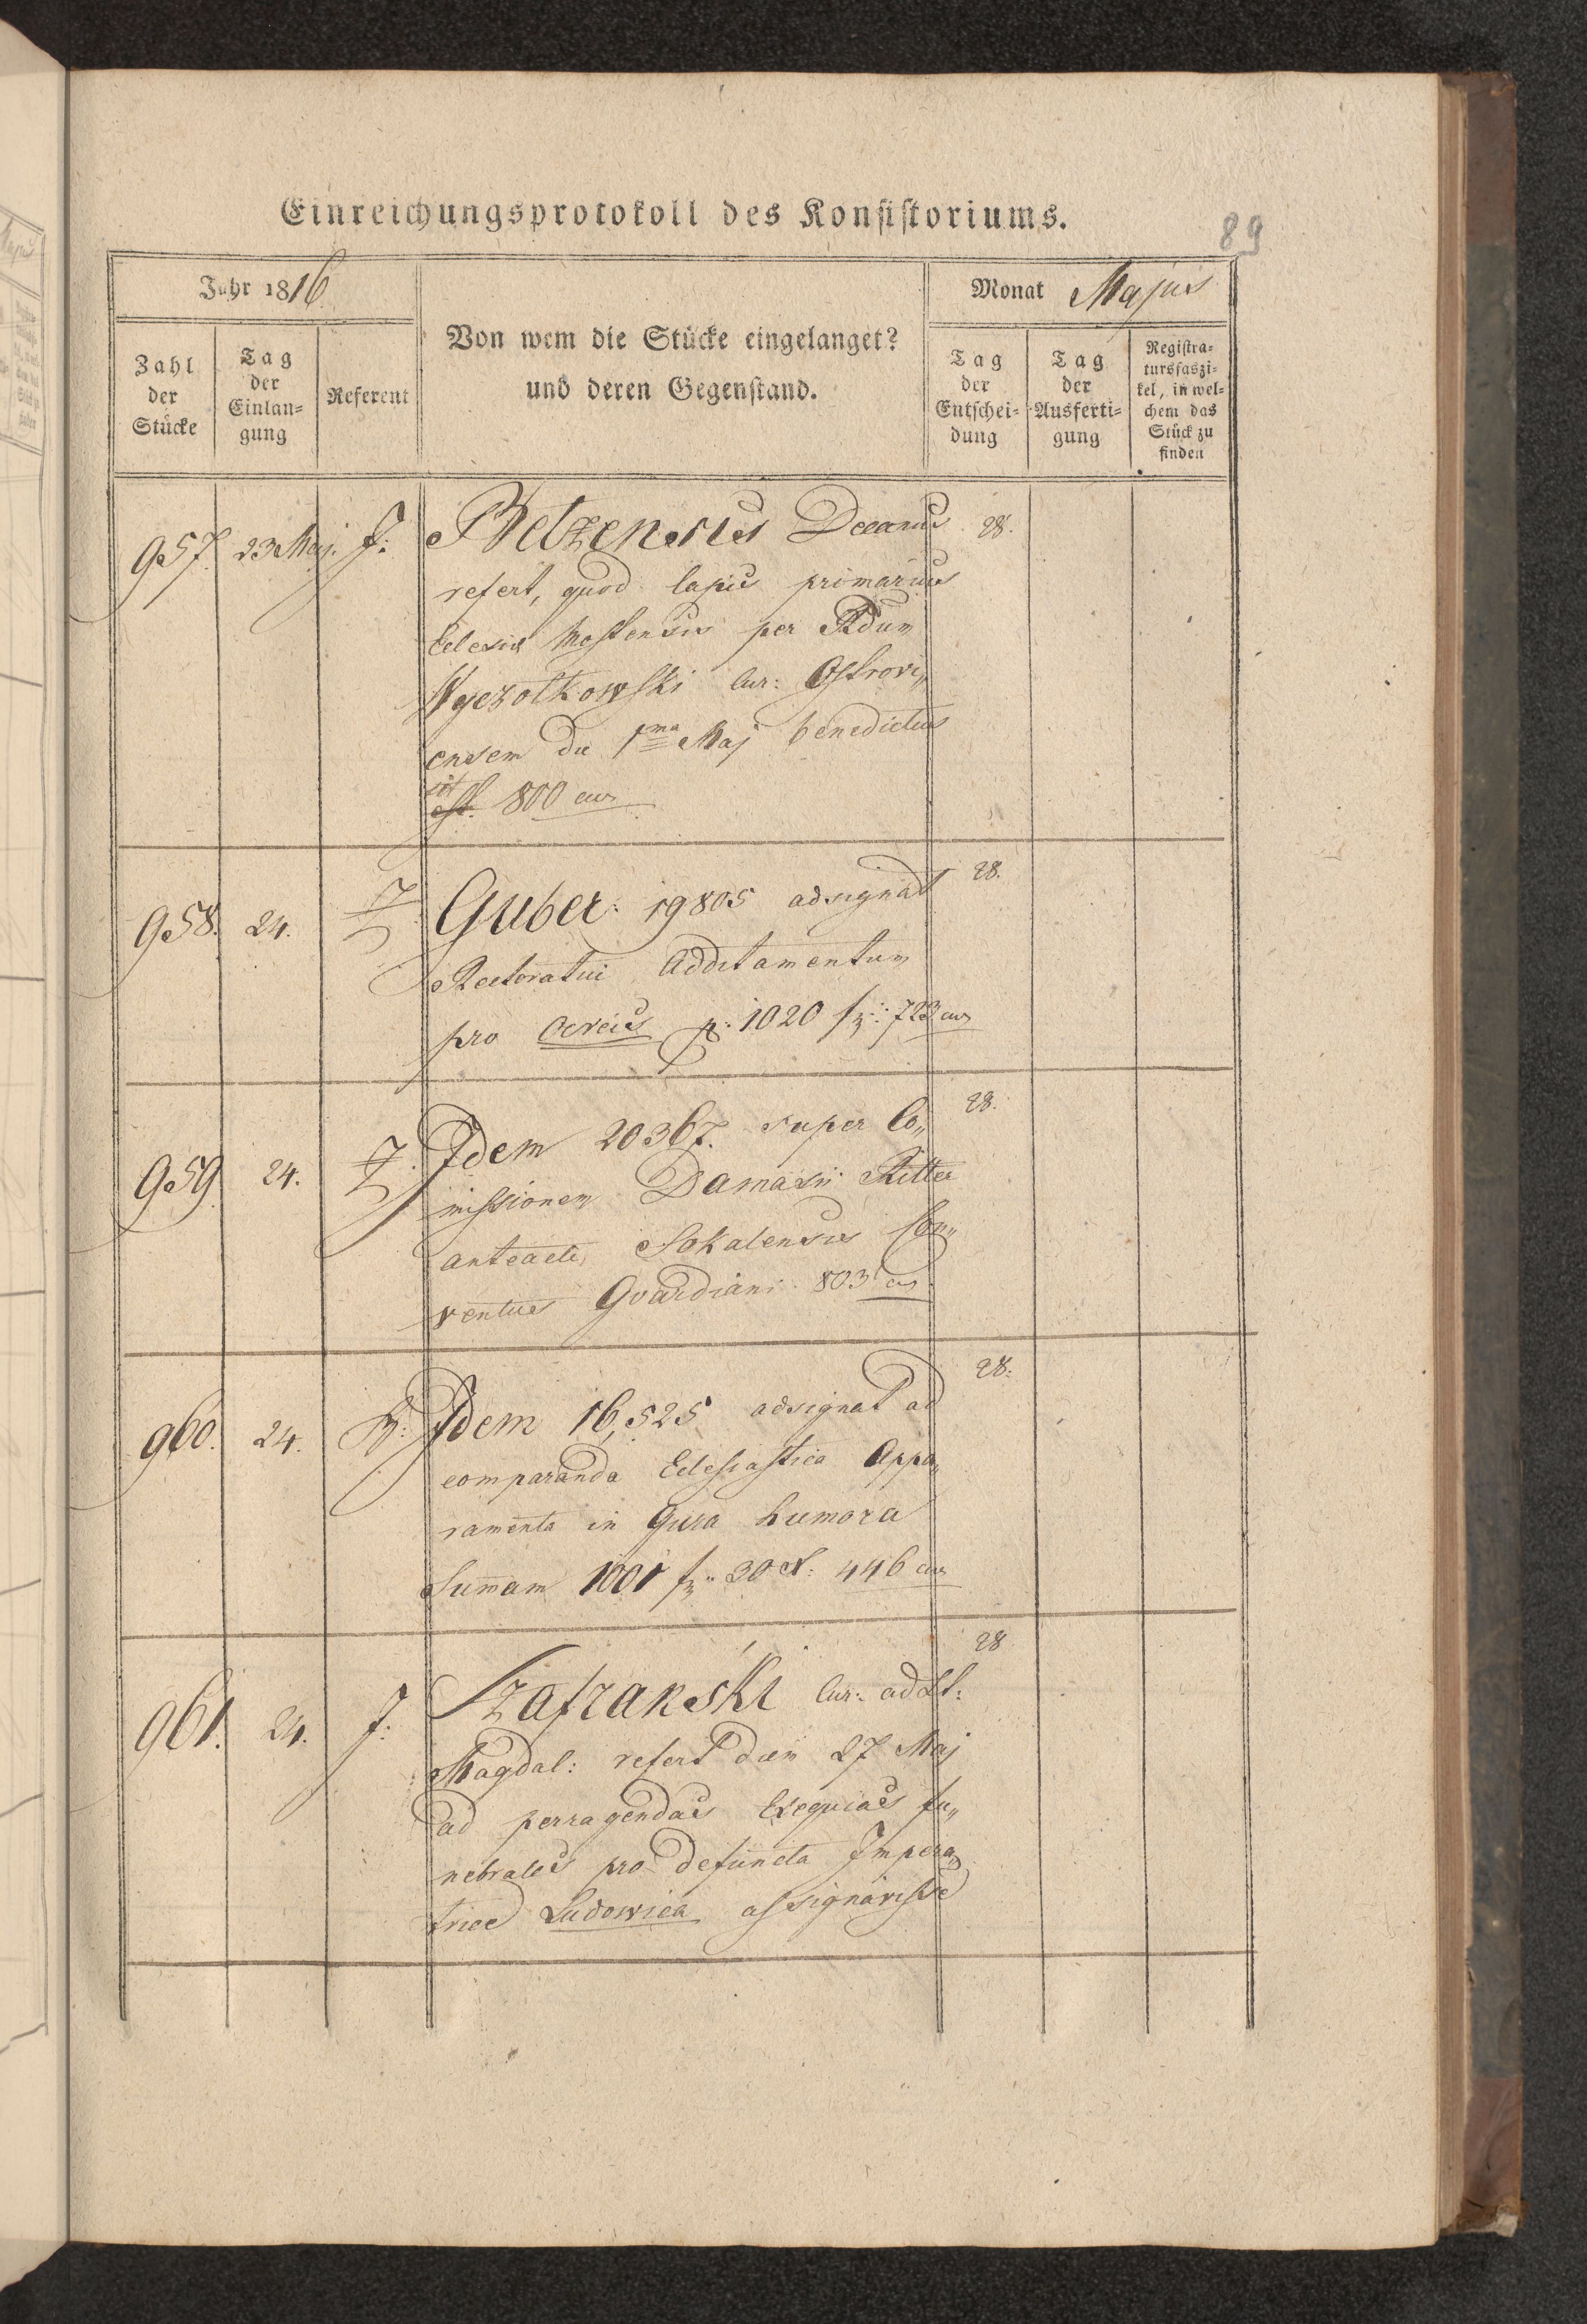 Einreichungsprotokoll des Konsistoriums.
89
Jahr 1816
Von wem die Stücke eingelanget?
und deren Gegenstand.
Monat Majus
Zahl
der
Stücke
Tag
der
Einlan-
gung
Referent
Tag
der
Entschei-
dung
Tag
der
Ausferti-
gung
Registra-
tursfaszi-
kel, in wel-
chem das
Stück zu
finden
957. 23 Maj. J: Belzensis Decanus 28.
refert, quod lapis primarius
Eclesia Mostensis per Rdum
Wyezołkowski Cur: Ostrovi„
ensem die 1ma Maj benedictus
sit
est. 800 cur
958. 24. Guber: 19805 adsignat 28.
Rectoratui Additamentum
pro Ocreis p: 1020 f: 723 cur
959 24. Idem 20367. super Co„ 28.
missionem Damasii Ritter
anteacti Sokalensis Con„
ventus Gvardiani 803 cur
960. 24. Idem 16,525 adsignat ad 28.
comparanda Eclesiastica Appa„
ramenta in Gura humora
Summam 1001 f „ 30 x: 446 cur
961. 24. J: Szafrański Cur: ad St: 28
Magdal: refert diem 27 Maj
ad perragendas Exequias fu„
nebrales pro defuncta Impera„
trice Ludowica assignavisse